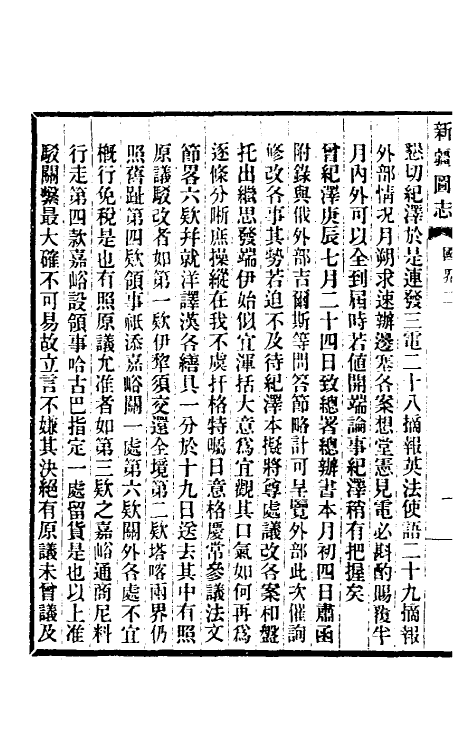 新疆圖志
國界二
懇切紀澤於是連發三電二十八摘報英法使語二十九摘報
外部情况月朔求速辦邊案各案想堂憲見電必斟酌賜覆半
月內外可以全到屆時若値開端論事紀澤稍有把握矣
曾紀澤庚辰七月二十四日致總署總辦書本月初四日肅函
附錄與俄外部吉爾斯等問答節略計可呈覽外部此次催詢
修改各事其勢若迫不及待紀澤本擬將尊處議改各案和盤
托出繼思發端伊始似宜渾括大意爲宜觀其口氣如何再爲
逐條分晰庶操縱在我不虞扞格特囑日意格慶常參議法文
節畧六欵幷就洋譯漢各繕具一分於十九日送去其中有照
原議駁改者如第一欵伊犂須交還全境第二欵塔喀兩界仍
照舊址第四欵領事祇添嘉峪關一處第六欵關外各處不宜
槪行免稅是也有照原議允准者如第三欵之嘉峪通商尼料
行走第四款嘉峪設領事哈古巴指定一處留貨是也以上准
駁關繫最大確不可易故立言不嫌其決絕有原議未曾議及